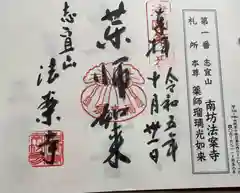 第一番 志宜山 南坊法案寺
札所 本尊 薬師瑠璃光如来
奉拝
令和五年
十月卅一日
薬師如来
志宜山
法案寺